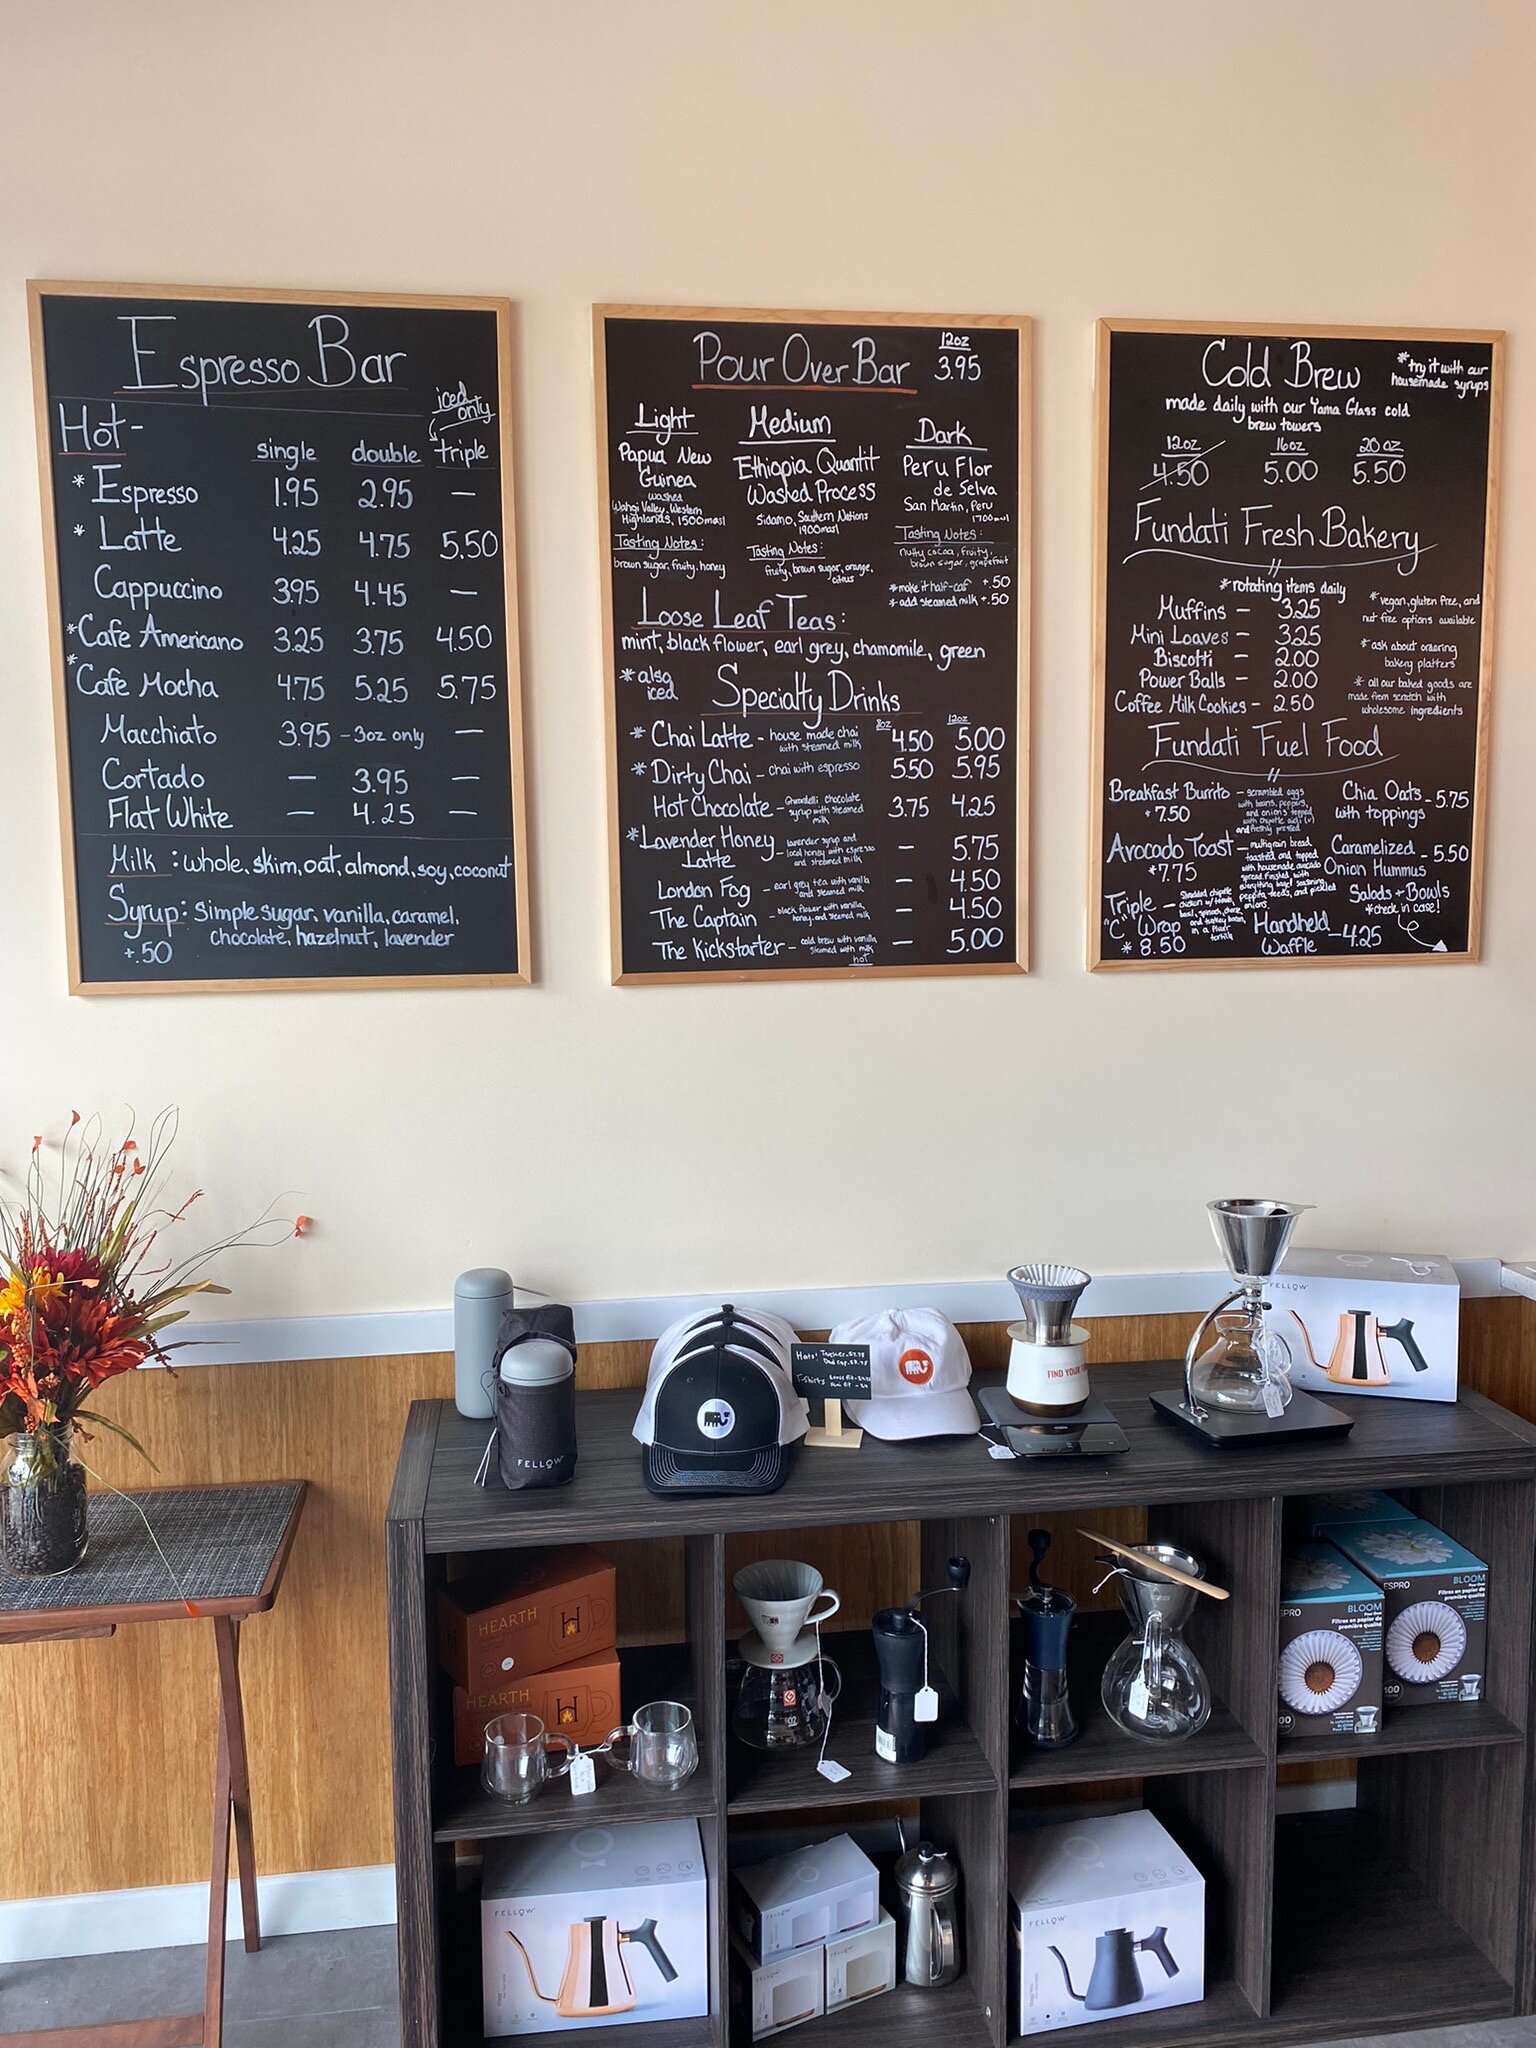 Espresso Bar
iced only
Hot-
single double triple
* Espresso 1.95 2.95 —
* Latte 4.25 4.75 5.50
Cappuccino 3.95 4.45 —
* Cafe Americano 3.25 3.75 4.50
* Cafe Mocha 4.75 5.25 5.75
Macchiato 3.95 - 3oz only —
Cortado — 3.95 —
Flat White — 4.25 —
Milk : whole, skim, oat, almond, soy, coconut
Syrup: Simple sugar, vanilla, caramel,
+.50 chocolate, hazelnut, lavender
Pour Over Bar 12oz 3.95
Light
Papua New
Guinea
washed
Wahgi Valley, Western
Highlands, 1500masl
Tasting Notes:
brown sugar, fruity, honey
Medium
Ethiopia Quantit
Washed Process
Sidamo, Southern Nations
1900masl
Tasting Notes:
fruity, brown sugar, orange,
citrus
Dark
Peru Flor
de Selva
San Martin, Peru
1700masl
Tasting Notes:
nutty cocoa, fruity,
brown sugar, grapefruit
* make it half-caf +.50
* add steamed milk +.50
Loose Leaf Teas:
mint, black flower, earl grey, chamomile, green
* also
iced
Specialty Drinks
8oz 12oz
* Chai Latte - house made chai with steamed milk 4.50 5.00
* Dirty Chai - chai with espresso 5.50 5.95
Hot Chocolate - Ghirardelli chocolate syrup with steamed milk 3.75 4.25
* Lavender Honey Latte - lavender syrup and local honey with espresso and steamed milk — 5.75
London Fog - earl grey tea with vanilla and steamed milk — 4.50
The Captain - black flower with vanilla, honey, and steamed milk — 4.50
The Kickstarter - cold brew with vanilla steamed with milk — 5.00
hot
Cold Brew
* try it with our
housemade syrups
made daily with our Yama Glass cold
brew towers
12oz 16oz 20oz
4.50 5.00 5.50
Fundati Fresh Bakery
* rotating items daily
Muffins - 3.25
Mini Loaves - 3.25
Biscotti - 2.00
Power Balls - 2.00
Coffee Milk Cookies - 2.50
* vegan, gluten free, and
nut free options available
* ask about ordering
bakery platters
* all our baked goods are
made from scratch with
wholesome ingredients
Fundati Fuel Food
Breakfast Burrito - scrambled eggs
* 7.50 with beans, peppers,
and onions topped
with chipotle aioli (v)
and freshly pressed
Avocado Toast - multigrain bread
* 7.75 toasted and topped
with housemade avocado
spread finished with
everything bagel seasoning,
pepita seeds, and pickled
onions.
Triple "C" Wrap - Shredded chipotle
* 8.50 chicken w/ tomato,
basil, spinach,
and turkey bacon,
in a flour
tortilla
Chia Oats - 5.75
with toppings
Caramelized - 5.50
Onion Hummus
Salads + Bowls
* check in case!
Handheld - 4.25
Waffle
Hats: Trucker
Dad cap
T-Shirts
FELLOW
FIND YOUR
FELLOW
HEARTH
H
HEARTH
H
02
ESPRO
BLOOM
Filtres en papier de
première qualité
100
ESPRO
BLOOM
Filtres en papier de
première qualité
100
FELLOW
FELLOW
FELLOW